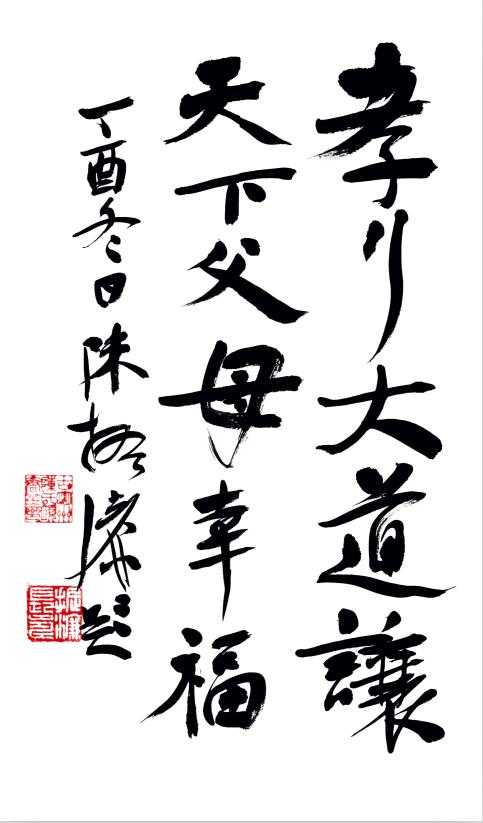 孝行大道讓
天下父母幸福
丁酉冬日陳振濂題